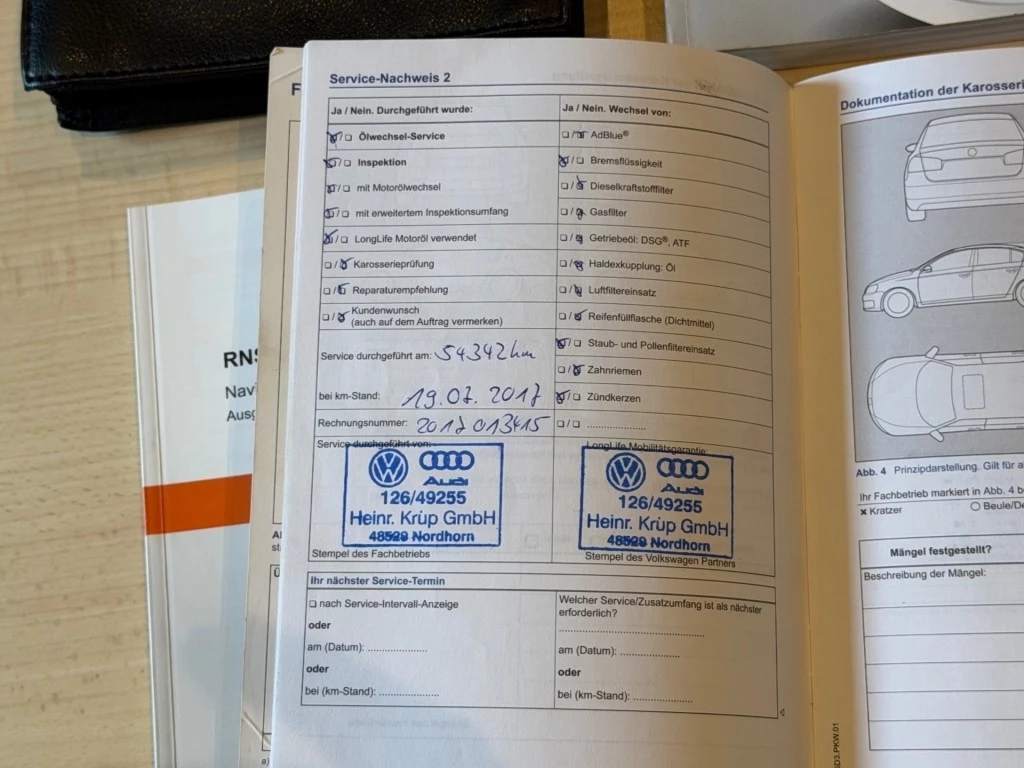 Service-Nachweis 2
Ja / Nein. Durchgeführt wurde:
☒/☐ Ölwechsel-Service
☒/☐ Inspektion
☒/☐ mit Motorölwechsel
☒/☐ mit erweitertem Inspektionsumfang
☒/☐ LongLife Motoröl verwendet
☐/☒ Karosserieprüfung
☐/☒ Reparaturempfehlung
☐/☒ Kundenwunsch
(auch auf dem Auftrag vermerken)
Service durchgeführt am: 54342km
bei km-Stand: 19.07.2017
Rechnungsnummer: 2017013415
Service durchgeführt von:
Audi
126/49255
Heinr. Krüp GmbH
48529 Nordhorn
Stempel des Fachbetriebs
Ja / Nein. Wechsel von:
☐/☒ AdBlue®
☒/☐ Bremsflüssigkeit
☐/☒ Dieselkraftstofffilter
☐/☒ Gasfilter
☐/☒ Getriebeöl: DSG®, ATF
☐/☒ Haldexkupplung: Öl
☐/☒ Luftfiltereinsatz
☐/☒ Reifenfüllflasche (Dichtmittel)
☒/☐ Staub- und Pollenfiltereinsatz
☐/☒ Zahnriemen
☒/☐ Zündkerzen
☐/☐ ....................
LongLife Mobilitätsgarantie:
Audi
126/49255
Heinr. Krüp GmbH
48529 Nordhorn
Stempel des Volkswagen Partners
Ihr nächster Service-Termin
☐ nach Service-Intervall-Anzeige
oder
am (Datum): ....................
oder
bei (km-Stand): ....................
Welcher Service/Zusatzumfang ist als nächster
erforderlich?
am (Datum): ....................
oder
bei (km-Stand): ....................
Dokumentation der Karosseri
Abb. 4 Prinzipdarstellung. Gilt für a
Ihr Fachbetrieb markiert in Abb. 4 b
✗ Kratzer ○ Beule/De
Mängel festgestellt?
Beschreibung der Mängel:
RNS
Navi
Ausg